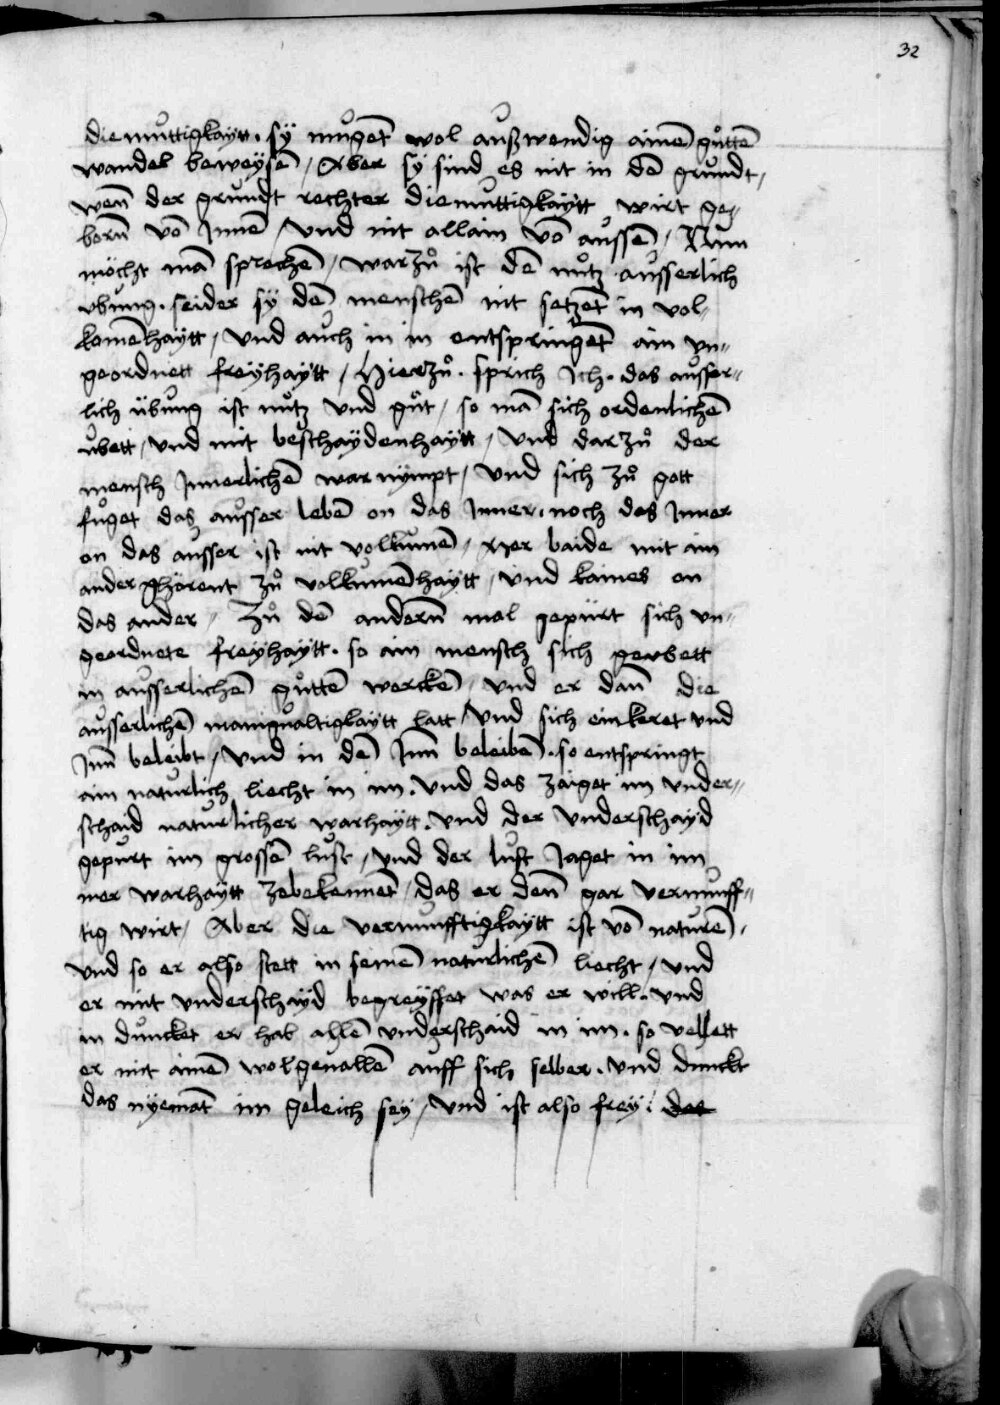 32
diemuttigkaytt. sÿ mugen̄t wol außwendig ainen̄ gůtten̄
wandel beweÿsen̄ / Aber sÿ sind es nit in dē grundt /
wen̄ der grundt rechter diemuttigkaÿtt wirt ge⸗
born̄ vō Jnnē / vnd nit allain vō aussen̄ / Nun
möcht mā sprechen̄ / warzů ist dē nutz ausserlich
vbung. seider sÿ den̄ menschen̄ nit setzen̄t in vol⸗
komēhaÿtt / vnd auch in im entspringen̄t ain vn⸗
geordnett freÿhaÿtt / Hierzů. sprich Jch. das ausser⸗
lich übung ist nutz vnd gůt / so mā sich ordenlichen̄
ubett / vnd mit beschaÿdenhaÿtt / vnd darzů der
mensch Jnnerlichen̄ war nÿmpt / vnd sich zů gott
fuget das ausser leben̄ on das Jnner. noch das Jnner
on das ausser ist nit volkumen̄ / Mer baide mit ain
ander ghörent zů volkumēhaÿtt / vnd kaines on
das ander / Zů dē andern̄ mal gepürt sich vn⸗
geordnete freÿhaÿtt. so ain mensch sich gevbett
in ausserlichen̄ gůtten̄ wercken̄ / vnd er dan̄ die
ausserlichen̄ manigualtigkaÿtt latt / vnd sich einkeret vnd
Jnn̄ beleibt / vnd in dē Jnn̄ beleiben̄. so entspringt
ain naturlich liecht in im. vnd das zaiget im vnder⸗
schaid naturlicher warhaÿtt. vnd der vnderschaÿd
gepurt im grossen̄ lust / vnd der lust Jaget in im
mer warhaÿtt zebekennen̄t / das er den̄ gar vernunff⸗
tig wirt / Aber die vernunfftigkaÿtt ist vō naturen̄ /
vnd so er also stett in seinen̄ naturlichen̄ liecht / vnd
er mit vnderschaÿd begreÿffet was er will. vnd
in duncket er hab allen̄ vnderschaid in im. so vellett
er mit ainen̄ wolgeuallen̄ auff sich selber. vnd dunckt
das nÿemāt im geleich seÿ / vnd ist also freÿ.